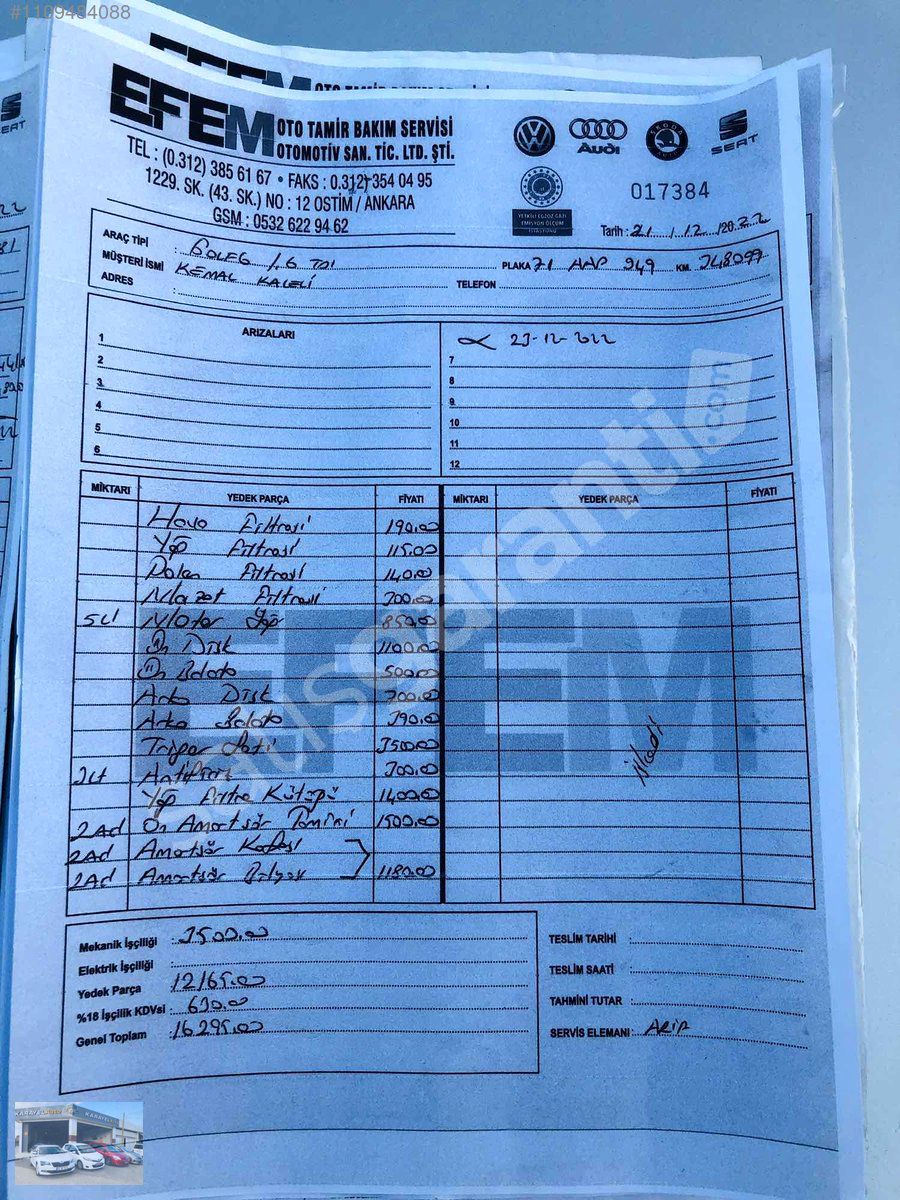 #1109484088
EFEM OTO TAMİR BAKIM SERVİSİ
OTOMOTİV SAN. TİC. LTD. ŞTİ.
TEL : (0.312) 385 61 67 • FAKS : 0.312) 354 04 95
1229. SK. (43. SK.) NO : 12 OSTİM / ANKARA
GSM : 0532 622 94 62
Audi
SKODA
SEAT
YETKİLİ EGZOZ GAZI
EMİSYON ÖLÇÜM
İSTASYONU
017384
Tarih : 21 / 12 / 2022
ARAÇ TİPİ : GOLF6 1.6 TDI
MÜŞTERİ ISMI : KEMAL KALELİ
PLAKA 71 AAP 949 KM. 348099
ADRES :
TELEFON
ARIZALARI
23-12-2022
1
2
3
4
5
6
7
8
9
10
11
12
MİKTARI YEDEK PARÇA FİYATI MİKTARI YEDEK PARÇA FİYATI
Hava Filtresi 190.00
Yağ Filtresi 115.00
Polen Filtresi 140.00
Mazot Filtresi 300.00
5Lt Motor Yağı 850.00
Ön Disk 1100.00
Ön Balata 500.00
Arka Disk 700.00
Arka Balata 390.00
Triger Seti 3500.00
3Lt Antifiriz 300.00
Yağ Filtre Kütüğü 1400.00
2Ad Ön Amortisör Tamiri 1500.00
2Ad Amortisör Kafası
2Ad Amortisör Bilyası 1180.00
işlendi
Mekanik İşçiliği : 3500.00
Elektrik İşçiliği :
Yedek Parça : 12165.00
%18 İşçilik KDVsi : 630.00
Genel Toplam : 16295.00
TESLİM TARİHİ :
TESLİM SAATİ :
TAHMİNİ TUTAR :
SERVİS ELEMANI : ARİF
EFEM
garanti.com